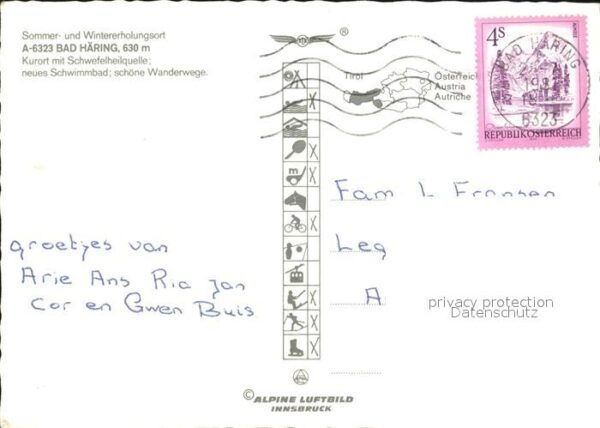 Sommer- und Wintererholungsort
A-6323 BAD HÄRING, 630 m
Kurort mit Schwefelheilquelle;
neues Schwimmbad; schöne Wanderwege.
®
Tirol
Österreich
Austria
Autriche
4S
BAD HÄRING
6323
REPUBLIK ÖSTERREICH
m
Fam L Fransen
Leg
A
groetjes van
Arie Ans Ria Jan
Cor en Gwen Buis
privacy protection
Datenschutz
© ALPINE LUFTBILD
INNSBRUCK